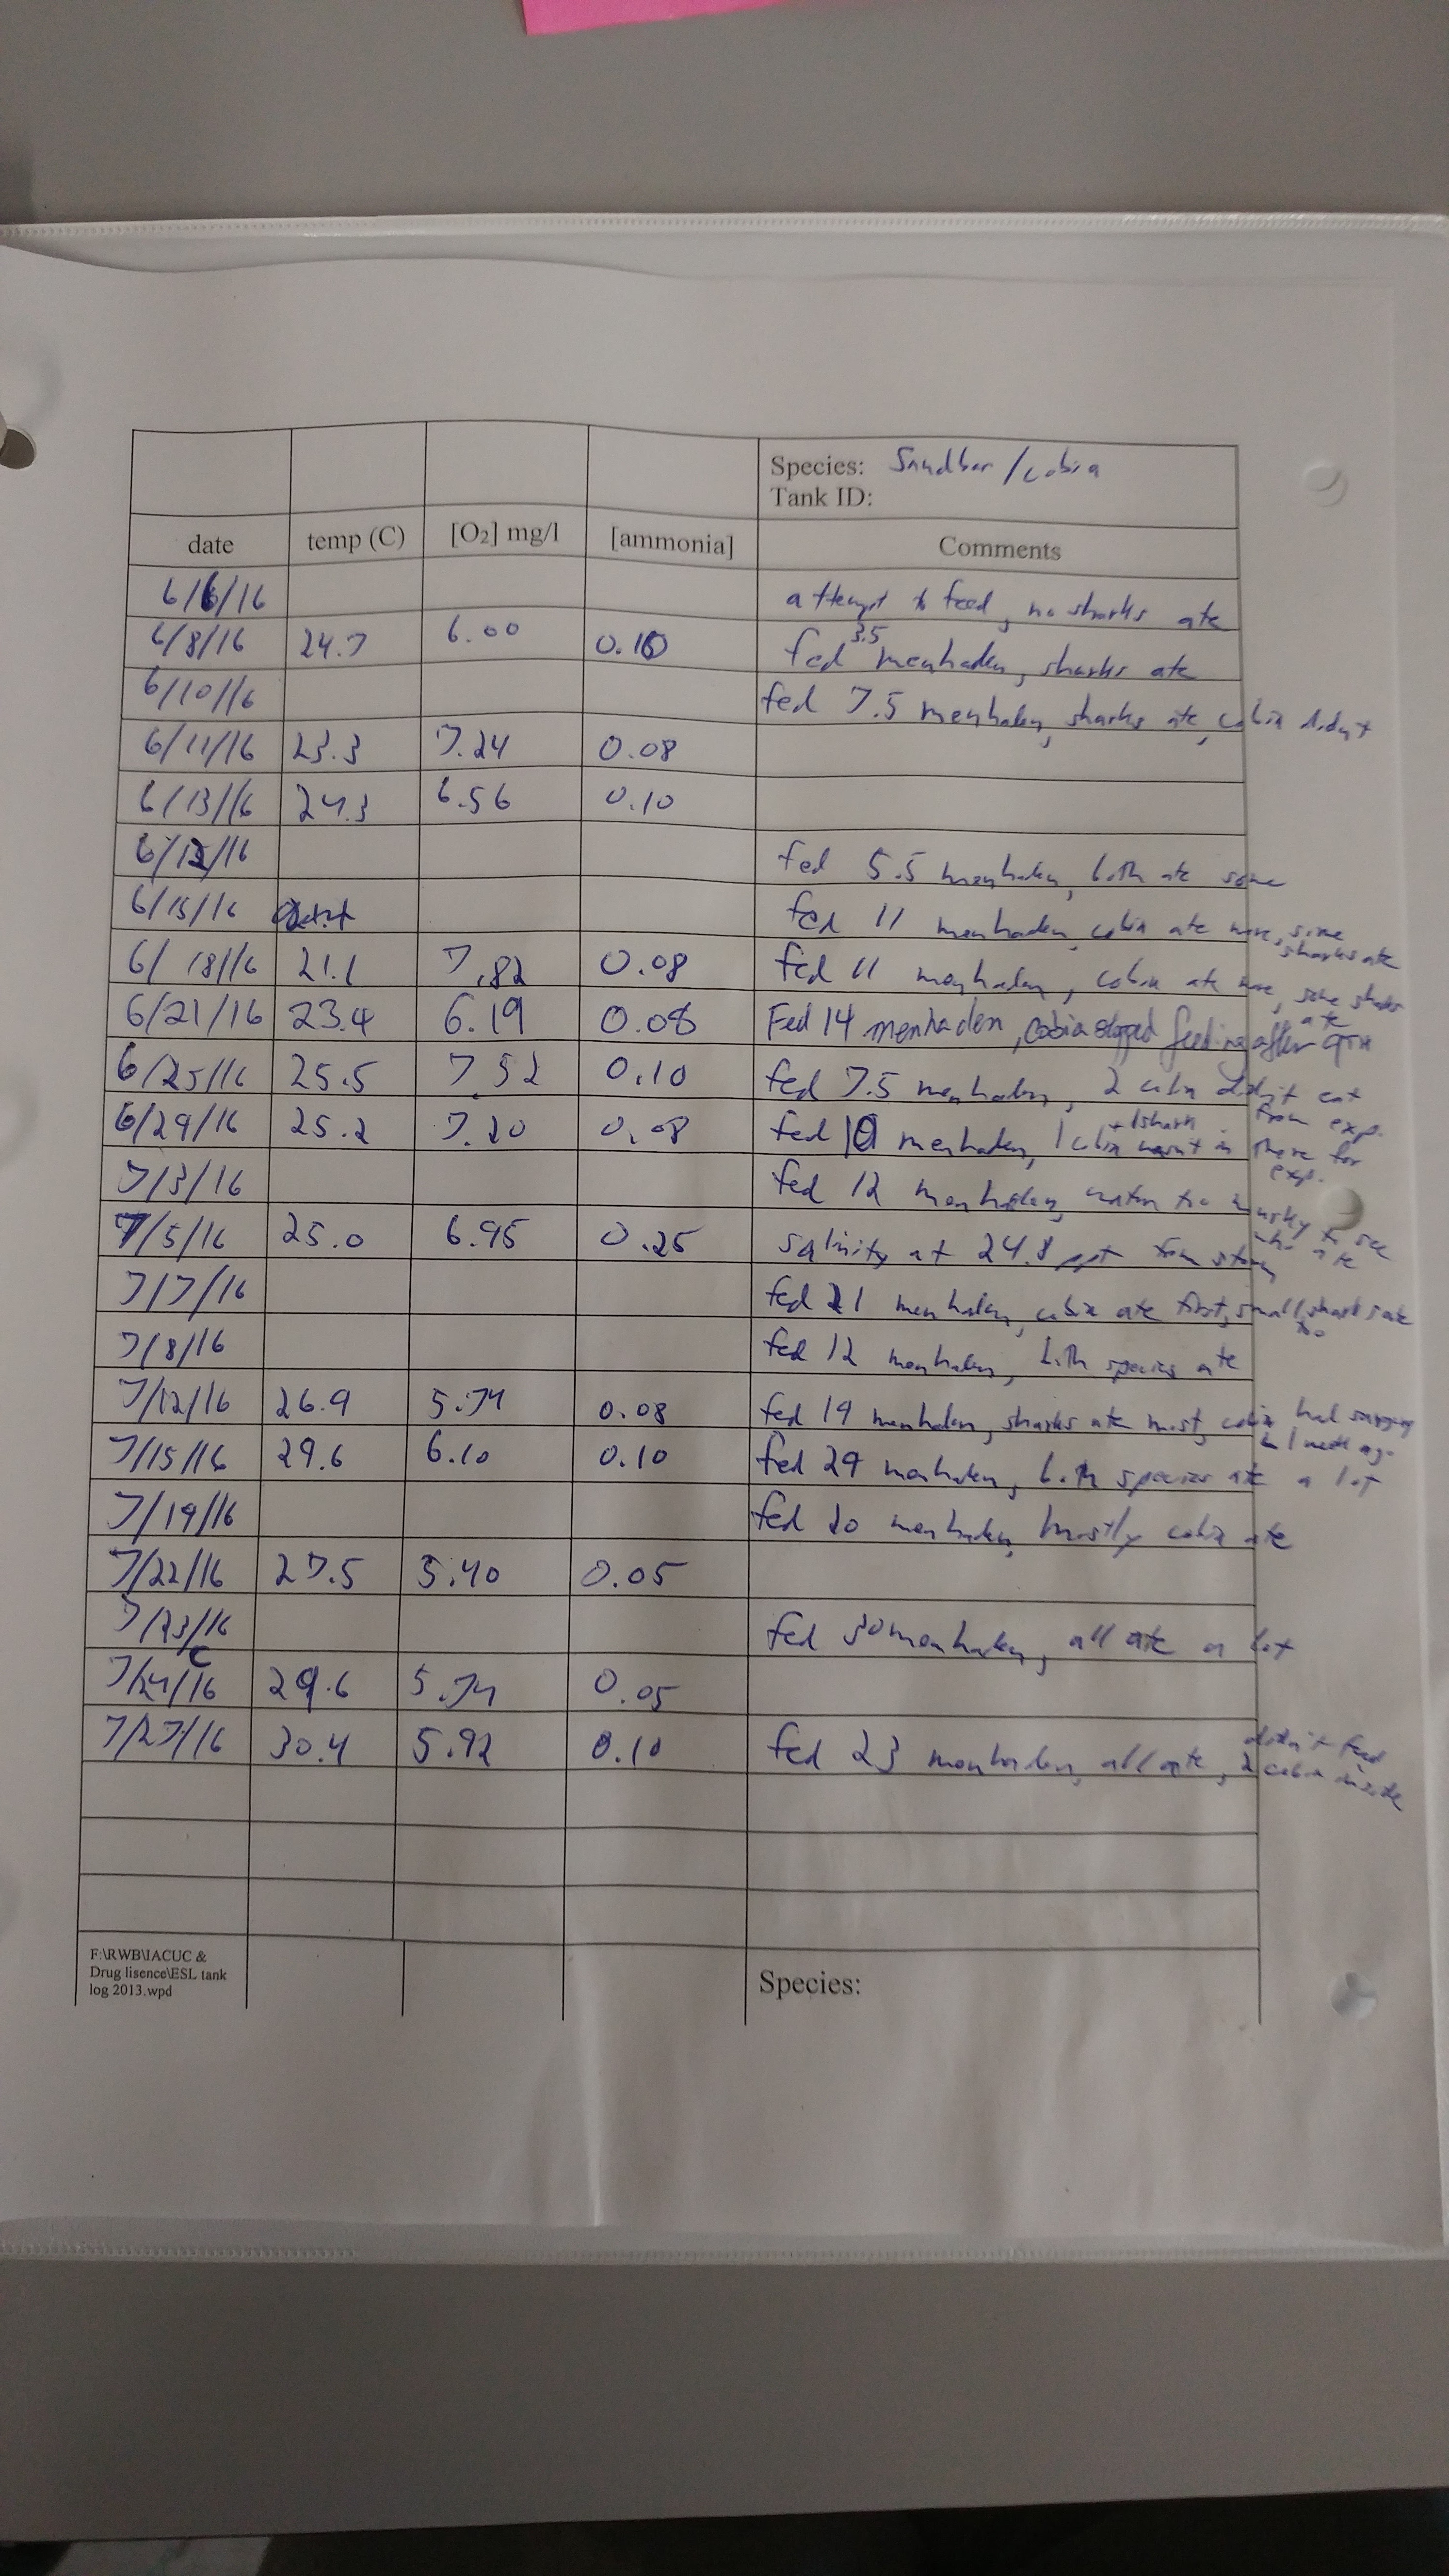 Species: Sandbar/cobia
Tank ID:
date temp (C) [O₂] mg/l [ammonia] Comments
6/6/16 attempt to feed, no sharks ate
6/8/16 24.7 6.00 0.10 fed 3.5 menhaden, sharks ate
6/10/16 fed 7.5 menhaden, sharks ate, cobia didn't
6/11/16 23.3 7.24 0.08
6/13/16 24.3 6.56 0.10
6/12/16 fed 5.5 menhaden, both ate some
6/15/16 fed 11 menhaden, cobia ate more, some sharks ate
6/18/16 21.1 7.82 0.08 fed 11 menhaden, cobia ate more, some sharks ate
6/21/16 23.4 6.19 0.08 Fed 14 menhaden, cobia stopped feeding after
6/25/16 25.5 7.52 0.10 fed 7.5 menhaden, 2 cobia didn't eat from exp.
6/29/16 25.2 7.20 0.08 fed 10 menhaden, 1 cobia + 1 shark wasn't in there for exp.
7/3/16 fed 12 menhaden, water too murky to see who ate
7/5/16 25.0 6.95 0.25 salinity at 24.8 ppt from storm
7/7/16 fed 21 menhaden, cobia ate first, small sharks ate too
7/8/16 fed 12 menhaden, both species ate
7/12/16 26.9 5.74 0.08 fed 19 menhaden, sharks ate most, cobia had surgery 1 week ago
7/15/16 29.6 6.10 0.10 fed 29 menhaden, both species ate a lot
7/19/16 fed 20 menhaden, mostly cobia ate
7/22/16 27.5 5.40 0.05
7/23/16 fed 30 menhaden, all ate a lot
7/24/16 29.6 5.74 0.05
7/27/16 30.4 5.92 0.10 fed 23 menhaden, all ate, didn't feed 2 cobia inside
F:\RWB\IACUC &
Drug lisence\ESL tank
log 2013.wpd
Species: